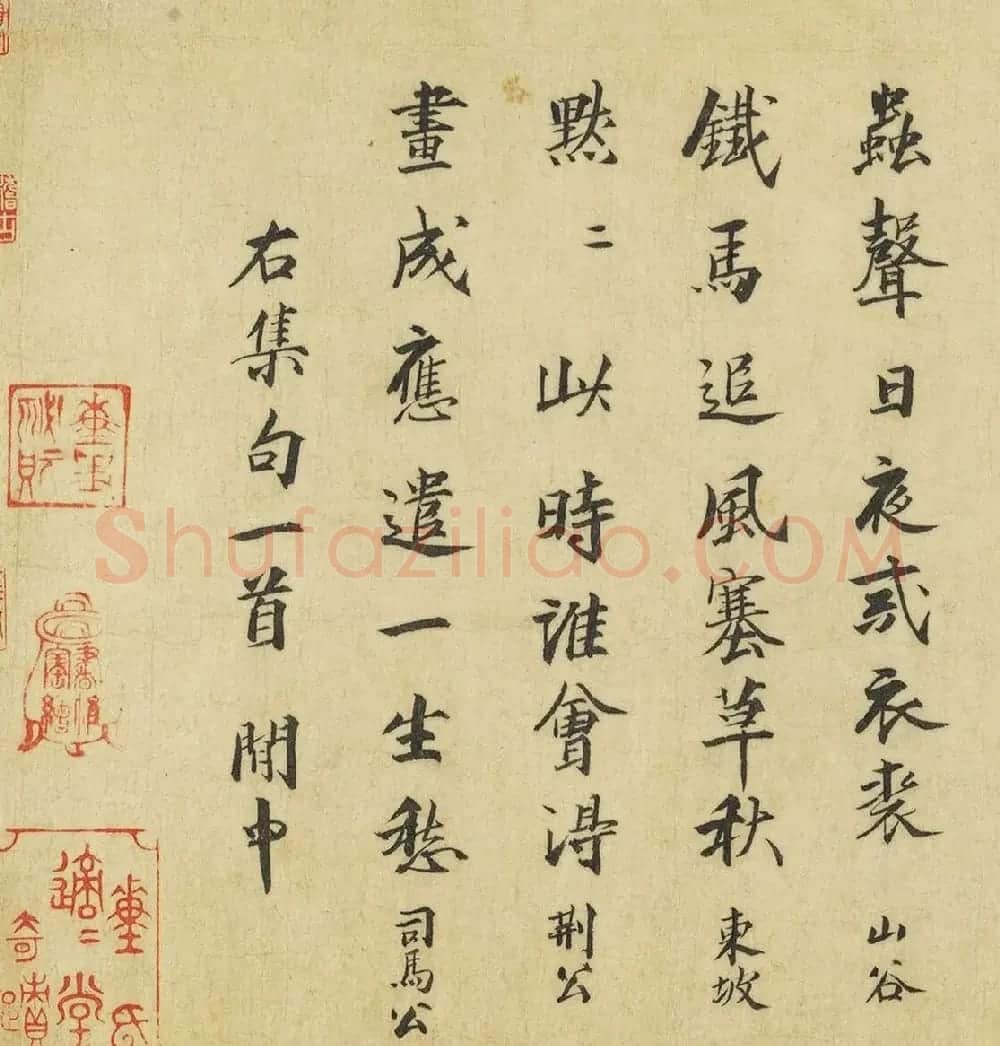 蟲聲日夜戒衣裘 山谷
鐵馬追風塞草秋 東坡
黙二此時誰會得 荆公
畫成應遣一生愁 司馬公
右集句一首 閒中
Shufaziliao.COM